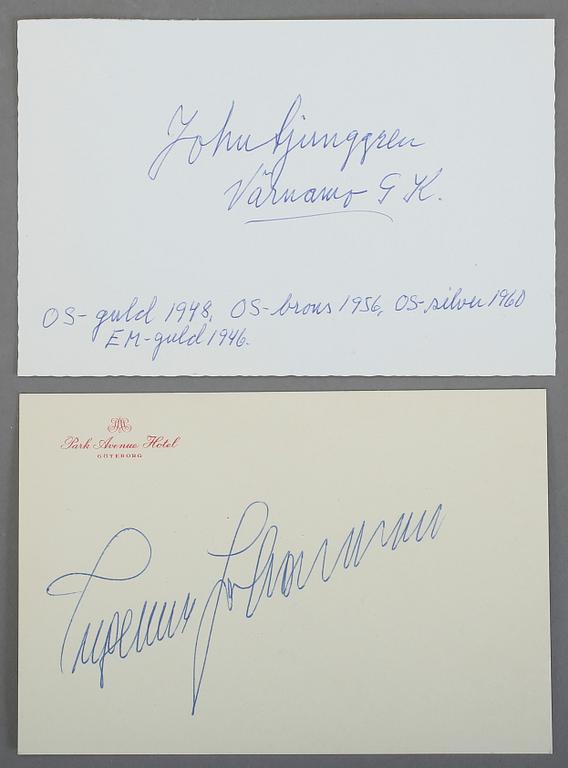 John Ljunggren
Värnamo G K.
OS-guld 1948, OS-brons 1956, OS-silver 1960
EM-guld 1946.
Park Avenue Hotel
GÖTEBORG
Ingemar Johansson